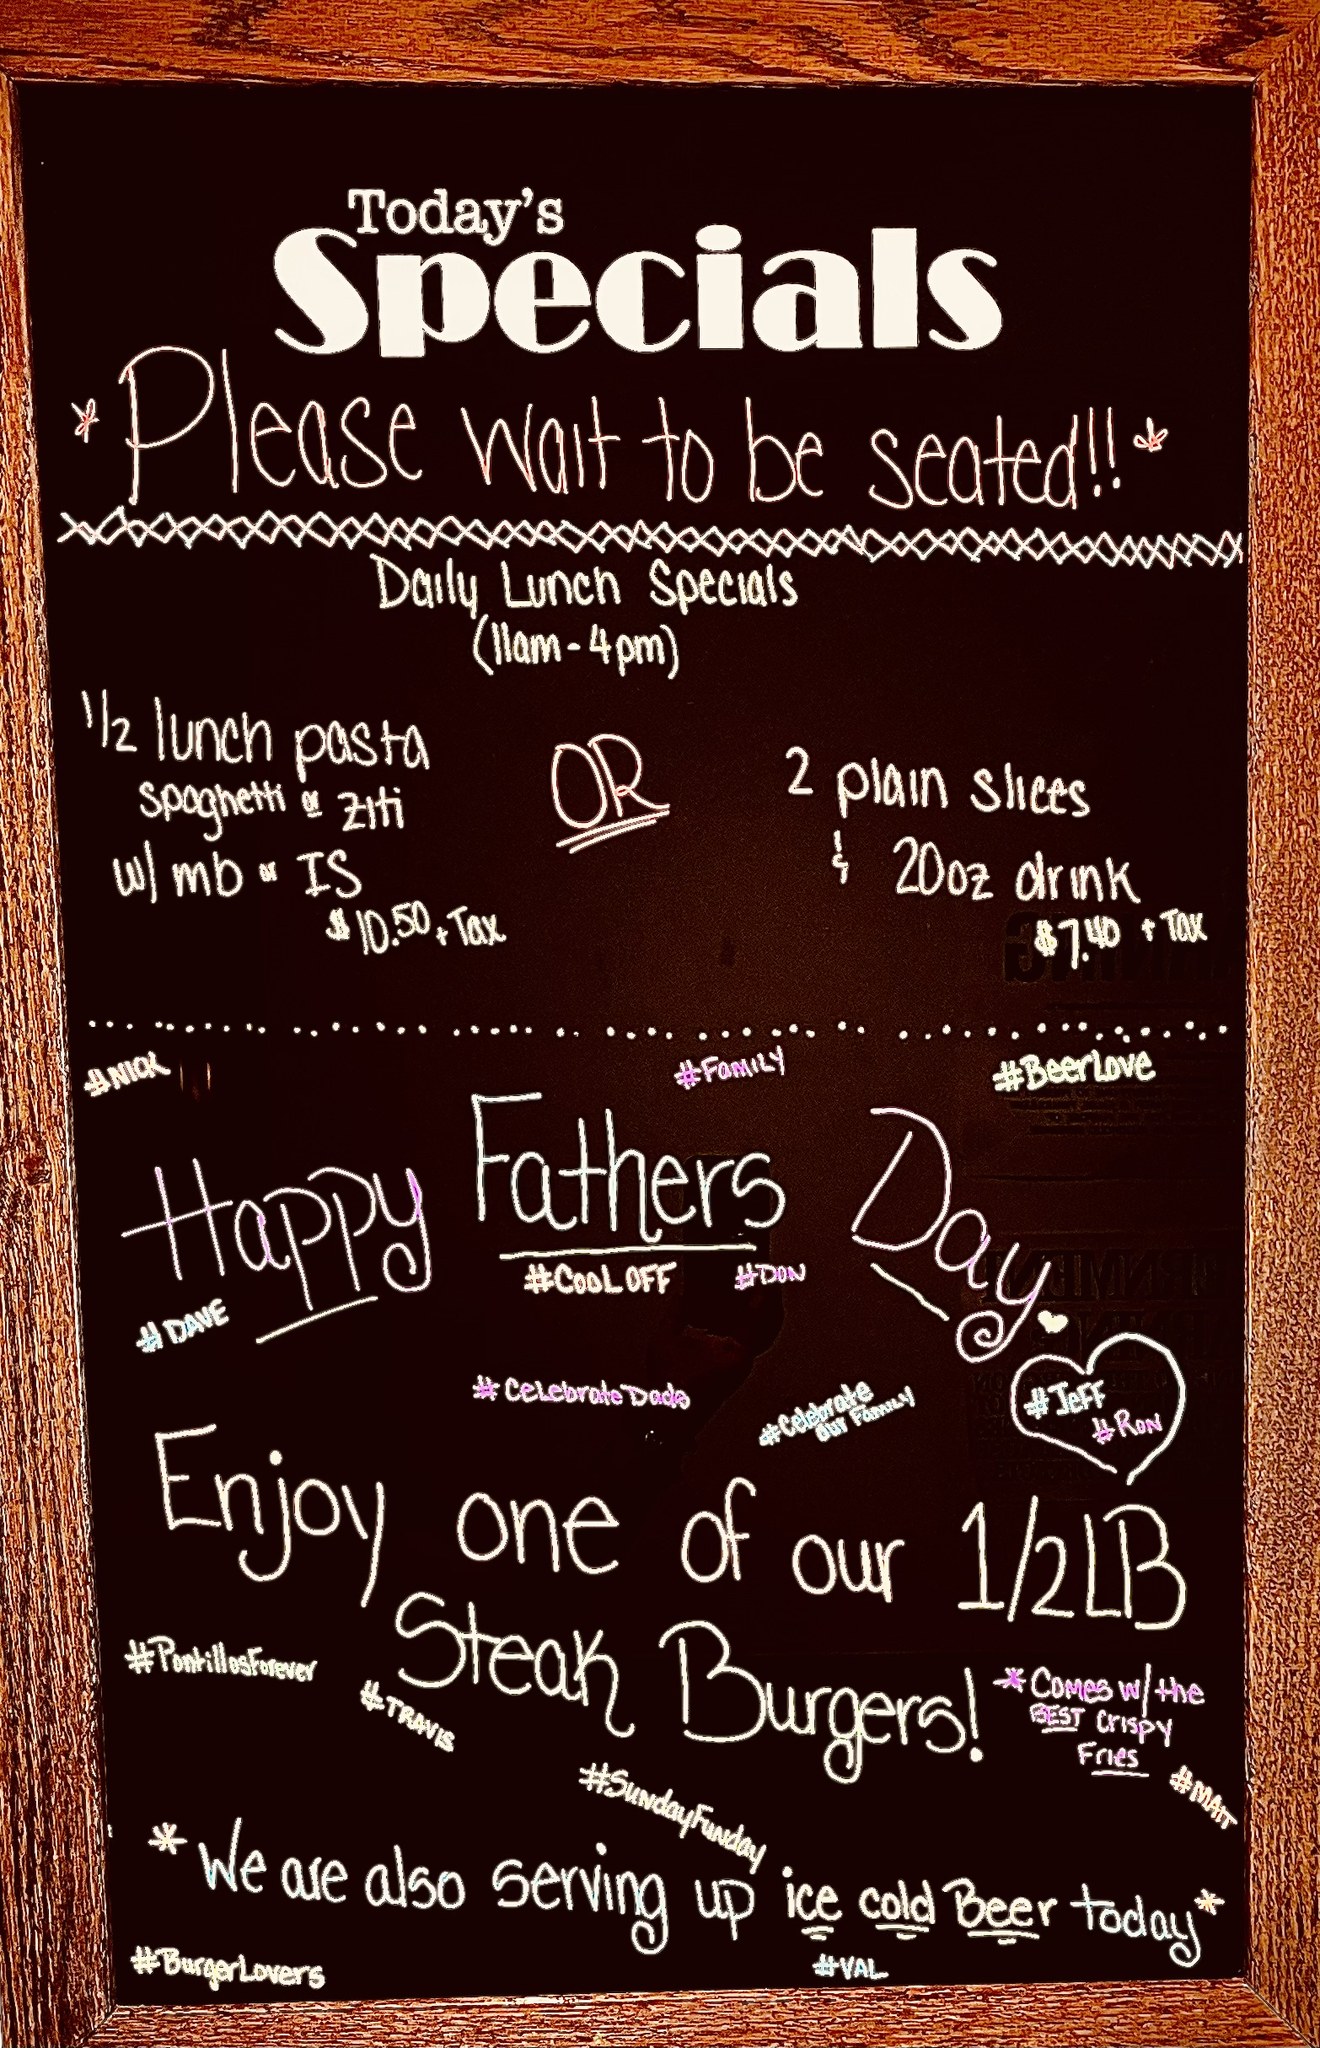 Today's
Specials
*Please wait to be seated!!*
Daily Lunch Specials
(11am-4pm)
1/2 lunch pasta
spaghetti or ziti
w/ mb or IS
$10.50 + Tax
OR
2 plain slices
& 20oz drink
$7.40 + Tax
#NICK
#FAMILY
#BeerLove
Happy Fathers Day
#COOLOFF
#DON
#DAVE
#CeLebrateDads
#Celebrate
our Family
#JeFF
#RON
Enjoy one of our 1/2LB
Steak Burgers!
#PontillosForever
#TRAVIS
*Comes w/ the
BEST crispy
Fries
#MATT
#SundayFunday
*We are also serving up ice cold Beer today*
#BurgerLovers
#VAL